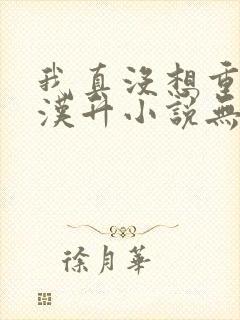 我真没想重
漢升小説無
徐月華